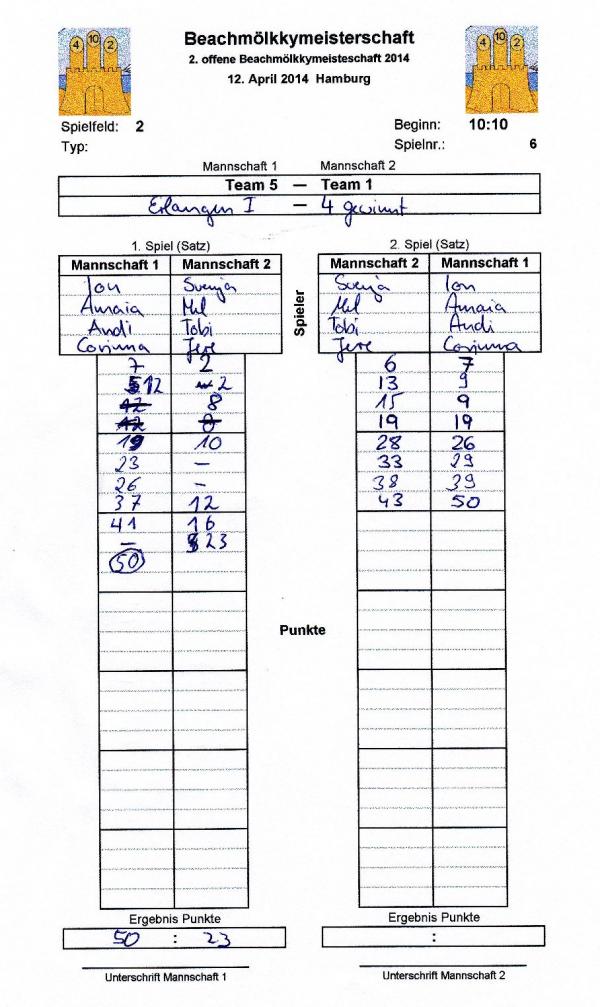 4 10 2
4 10 2
Beachmölkkymeisterschaft
2. offene Beachmölkkymeisteschaft 2014
12. April 2014 Hamburg
Spielfeld: 2
Beginn: 10:10
Typ:
Spielnr.: 6
Mannschaft 1 Mannschaft 2
Team 5 — Team 1
Erlangen I — 4 gewinnt
1. Spiel (Satz)
Mannschaft 1 Mannschaft 2
Jon Svenja
Amaia Mel
Andi Tobi
Corinna Jere
7 2
12 2
12 8
12 8
19 10
23 –
26 –
37 12
41 16
– 23
50
Spieler
2. Spiel (Satz)
Mannschaft 2 Mannschaft 1
Svenja Jon
Mel Amaia
Tobi Andi
Jere Corinna
6 7
13 9
15 9
19 19
28 26
33 29
38 39
43 50
Punkte
Ergebnis Punkte
50 : 23
Unterschrift Mannschaft 1
Ergebnis Punkte
:
Unterschrift Mannschaft 2